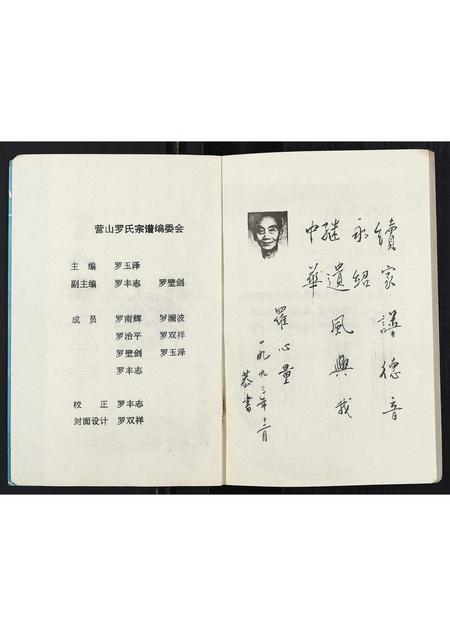 营山罗氏宗谱编委会
主 编 罗玉泽
副主编 罗丰志 罗壁剑
成 员 罗南辉 罗澜波
罗治平 罗双祥
罗壁剑 罗玉泽
罗丰志
校 正 罗丰志
封面设计 罗双祥
續家譜德音
永紹
继遺風興我
中華
羅心量
一九九三年十二月
恭書